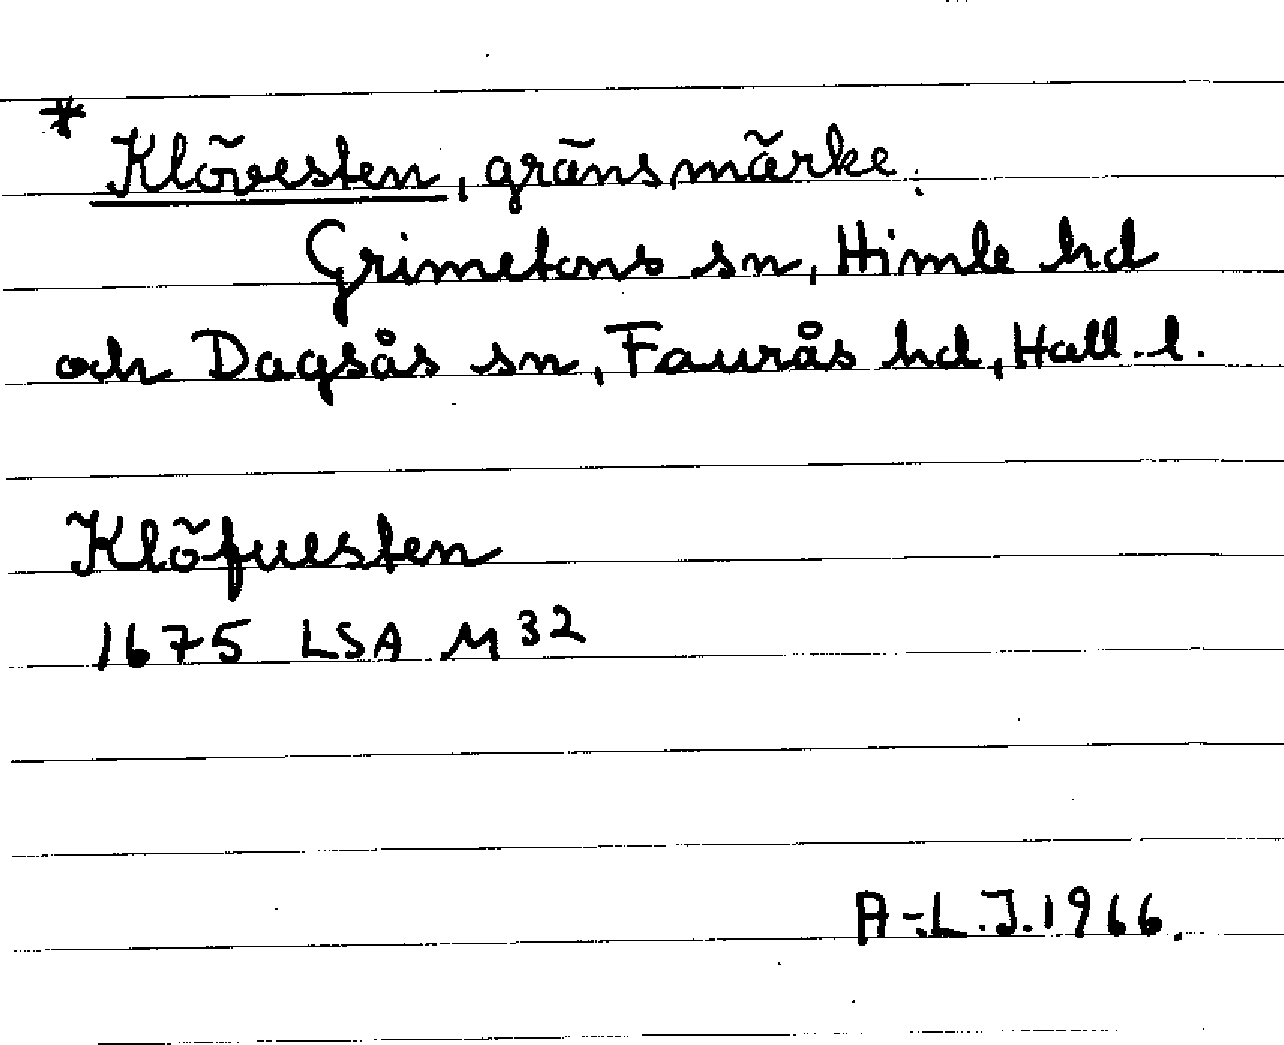 *
Klövesten, gränsmärke.
Grimetons sn, Himle hd
och Dagsås sn, Faurås hd, Hall. l.
Klöfuesten
1675 LSA M 32
A-L.J. 1966.